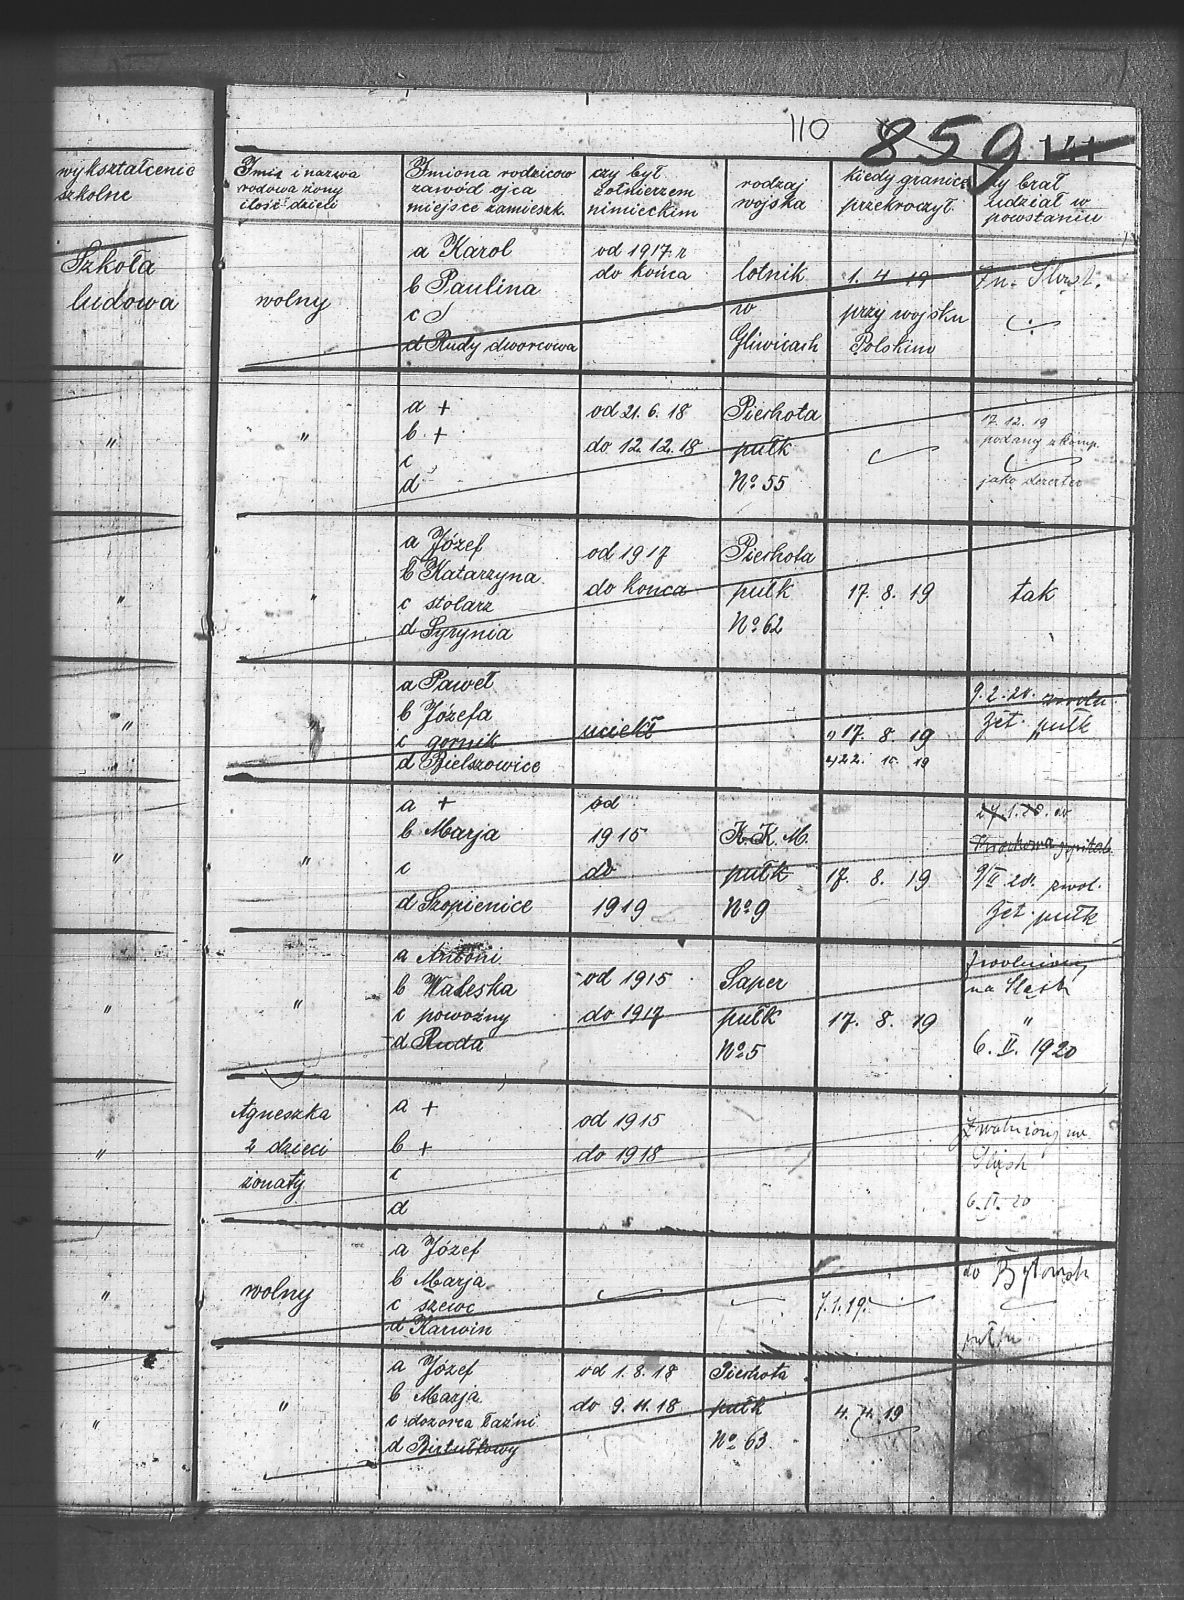 110 859 141
wykształcenie
szkolne
Imię i nazwa
rodowa żony
ilość dzieci
Imiona rodziców
zawód ojca
miejsce zamieszk.
czy był
żołnierzem
nimieckim
rodzaj
wojska
kiedy granicę
przekroczył
czy brał
udział w
powstaniu
Szkoła
ludowa
wolny
a Karol
b Paulina
c
d Rudy dworcowa
od 1917 r
do końca
lotnik
w
Gliwicach
1. 4 19
przy wojsku
Polskim
"
"
a +
b +
c
d
od 21. 6. 18
do 12. 12. 18
Piechota
pułk
No 55
17. 12. 19
podany z komp.
jako
"
"
a Józef
b Katarzyna
c stolarz
d Syrynia
od 1917
do końca
Piechota
pułk
No 62
17. 8. 19
tak
"
"
a Paweł
b Józefa
c gornik
d Bielszowice
uciekł
" 17. 8. 19
9. 2. 20.
pułk
"
"
a +
b Marja
c
d Szopienice
od
1915
do
1919
K. K. M.
pułk
No 9
17. 8. 19
9/II 20. zwol.
pułk
"
"
a Antoni
b Waleska
c powoźny
d Ruda
od 1915
do 1917
Saper
pułk
No 5
17. 8. 19
zwolniony
na Śląsk
"
6. II. 1920
"
Agneszka
2 dzieci
żonaty
a +
b +
c
d
od 1915
do 1918
Zwolniony na
Śląsk
6. II. 20
"
wolny
a Józef
b Marja
c szewc
d Karwin
7. 1. 19.
do Bytomsk
pułku
"
"
a Józef
b Marja
c dozorca łaźni
d
od 1. 8. 18
do 9. 11. 18
Piechota
pułk
No 63